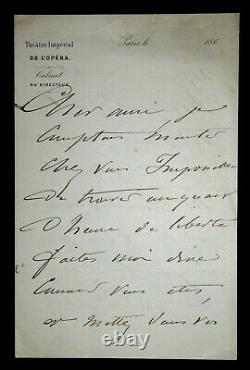 Théâtre Impérial
DE L'OPÉRA.
Cabinet
DU DIRECTEUR
Paris, le 186
Cher ami je
comptais monter
chez vous Impossible
de trouver un quart
d'heure de liberté
faites moi dire
comment vous êtes,
et mettez vous